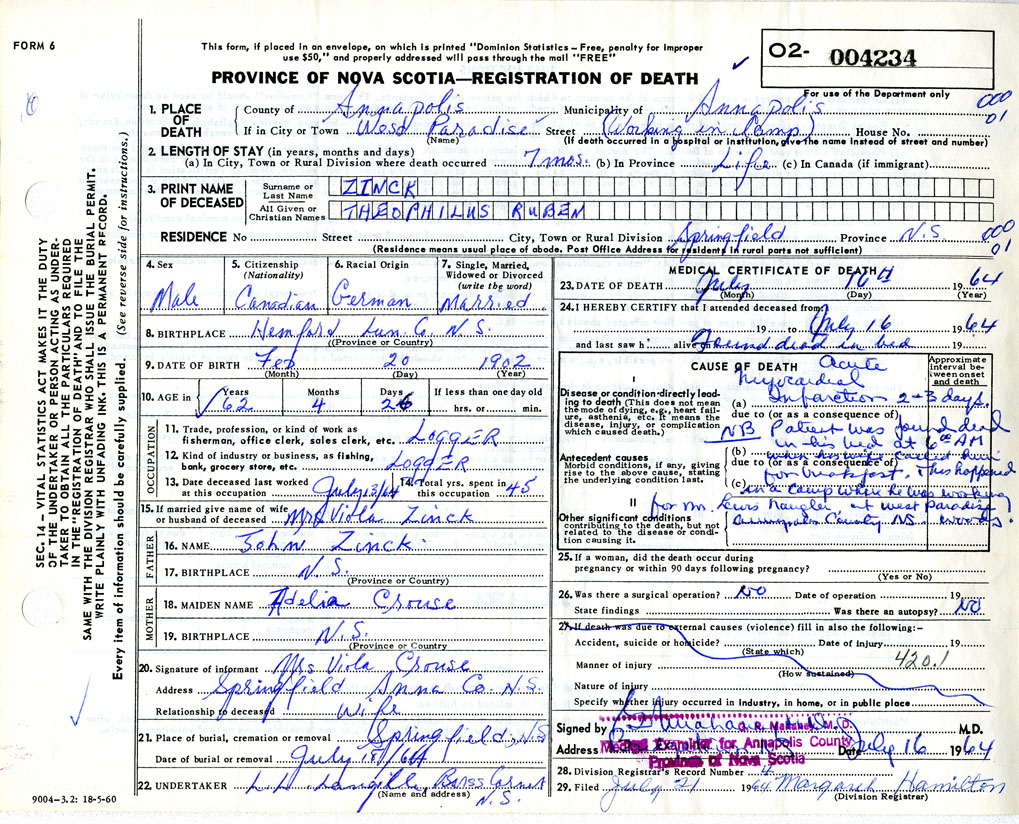 FORM 6
This form, if placed in an envelope, on which is printed "Dominion Statistics – Free, penalty for improper
use $50," and properly addressed will pass through the mail "FREE"
PROVINCE OF NOVA SCOTIA—REGISTRATION OF DEATH
O2- 004234
For use of the Department only
1. PLACE OF DEATH County of Annapolis Municipality of Annapolis 000 01
If in City or Town West Paradise Street (Working in Camp) House No.
(Name) (If death occurred in a hospital or institution, give the name instead of street and number)
2. LENGTH OF STAY (in years, months and days)
(a) In City, Town or Rural Division where death occurred 7 mos. (b) In Province Life (c) In Canada (if immigrant)
3. PRINT NAME OF DECEASED Surname or Last Name ZINCK
All Given or Christian Names THEOPHILUS RUBEN
RESIDENCE No Street City, Town or Rural Division Springfield Province N.S. 000 01
(Residence means usual place of abode. Post Office Address for residents in rural parts not sufficient)
4. Sex Male
5. Citizenship (Nationality) Canadian
6. Racial Origin German
7. Single, Married, Widowed or Divorced (write the word) Married
8. BIRTHPLACE Hemford Lun. Co. N.S.
(Province or Country)
9. DATE OF BIRTH Feb 20 1902
(Month) (Day) (Year)
10. AGE in Years Months Days If less than one day old
62 4 26 hrs. or min.
OCCUPATION
11. Trade, profession, or kind of work as
fisherman, office clerk, sales clerk, etc. LOGGER
12. Kind of industry or business, as fishing,
bank, grocery store, etc. LOGGER
13. Date deceased last worked at this occupation July 13/64 14. Total yrs. spent in this occupation 45
15. If married give name of wife
or husband of deceased Mrs Viola Zinck
FATHER
16. NAME John Zinck
17. BIRTHPLACE N.S.
(Province or Country)
MOTHER
18. MAIDEN NAME Adelia Crouse
19. BIRTHPLACE N.S.
(Province or Country
20. Signature of informant Mrs Viola Crouse
Address Springfield Anna Co. N.S.
Relationship to deceased Wife
21. Place of burial, cremation or removal Springfield, N.S
Date of burial or removal July 18/64
22. UNDERTAKER
(Name and address) N.S.
9004–3.2: 18-5-60
MEDICAL CERTIFICATE OF DEATH
23. DATE OF DEATH July 16th 1964
(Month) (Day) (Year)
24. I HEREBY CERTIFY that I attended deceased from
19 to July 16 1964
and last saw h alive on Found dead in bed 19
CAUSE OF DEATH
Approximate interval between onset and death
I
Disease or condition directly leading to death (This does not mean the mode of dying, e.g., heart failure, asthenia, etc. It means the disease, injury, or complication which caused death.)
Acute
Myocardial
(a) Infarction 2-3 days.
due to (or as a consequence of)
NB Patient was found dead
in his bed at 6:00 AM
Antecedent causes
Morbid conditions, if any, giving rise to the above cause, stating the underlying condition last.
(b) when his wife called him
due to (or as a consequence of)
for breakfast. This happened
(c) in a camp where he was working
II
for Mr. Lewis at West Paradise
Other significant conditions
contributing to the death, but not related to the disease or condition causing it.
Annapolis County NS woods.
25. If a woman, did the death occur during
pregnancy or within 90 days following pregnancy?
(Yes or No)
26. Was there a surgical operation? No Date of operation 19
State findings Was there an autopsy? No
27. If death was due to external causes (violence) fill in also the following:–
Accident, suicide or homicide? Date of injury 19
(State which)
Manner of injury 420.1
(How sustained)
Nature of injury
Specify whether injury occurred in industry, in home, or in public place
Signed by M.D.
Medical Examiner for Annapolis County
Address Date July 16 1964
Province of Nova Scotia
28. Division Registrar's Record Number 4
29. Filed July 21 1964 Margaret Hamilton
(Division Registrar)
SEC. 14 – VITAL STATISTICS ACT MAKES IT THE DUTY
OF THE UNDERTAKER OR PERSON ACTING AS UNDER-
TAKER TO OBTAIN ALL THE PARTICULARS REQUIRED
IN THE "REGISTRATION OF DEATH" AND TO FILE THE
SAME WITH THE DIVISION REGISTRAR WHO SHALL ISSUE THE BURIAL PERMIT.
WRITE PLAINLY WITH UNFADING INK. THIS IS A PERMANENT RECORD.
Every item of information should be carefully supplied. (See reverse side for instructions.)